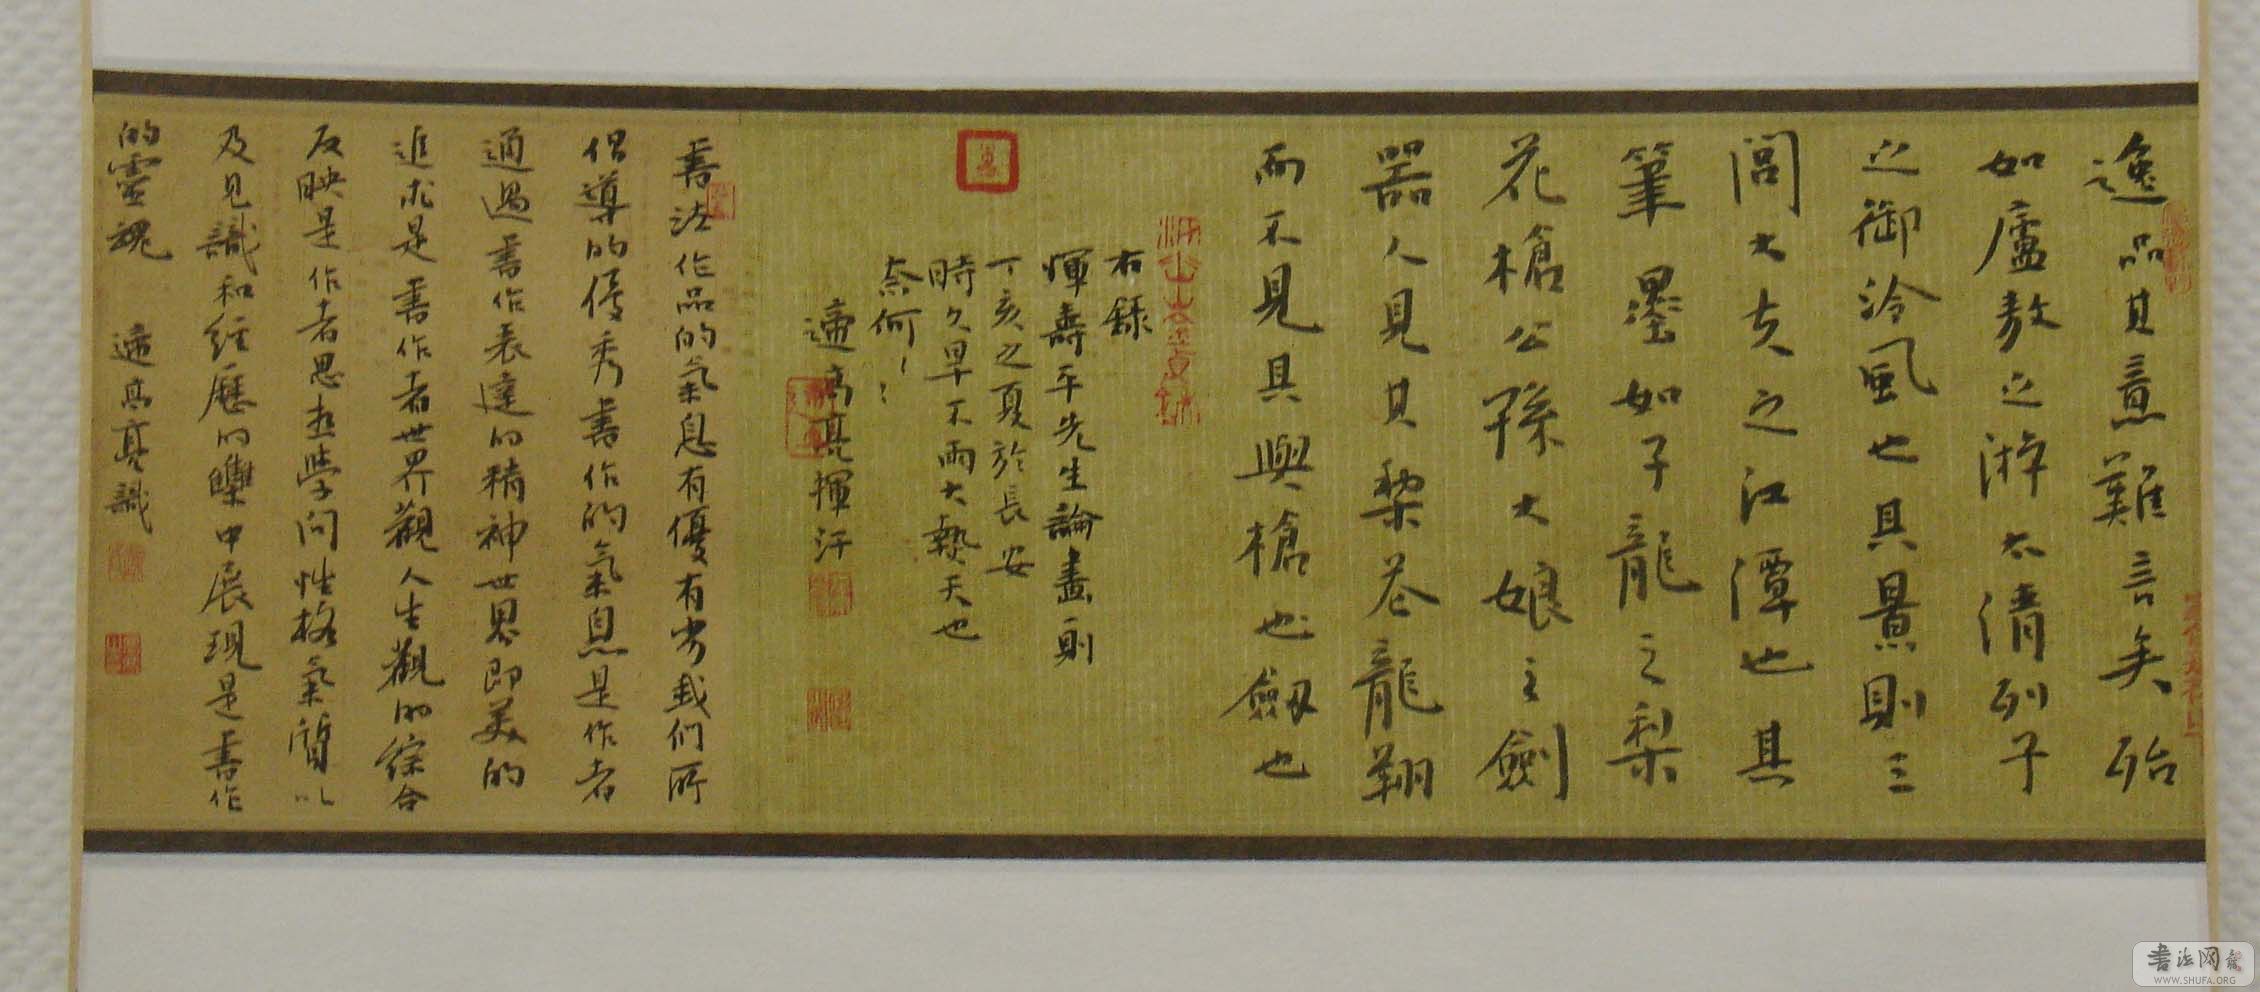 逸品其意難言矣殆
如廬敖之游太清列子
之御泠風也其景則三
閭大夫之江潭也其
筆墨如子龍之梨
花槍公孫大娘之劍
器人見其梨花龍翔
而不見其與槍也劔也
右錄
惲壽平先生論畫則
丁亥之夏於長安
時久旱不雨大熱天也
奈何〻
適高亮揮汗
書法作品的氣息有優有劣我们所
倡導的優秀書作的氣息是作者
通過書作表達的精神世界即美的
追求是書作者世界觀人生觀的综合
反映是作者思想學问性格氣質以
及見識和經歷的集中展現是書作
的靈魂
適高亮識
書法网
WWW.SHUFA.ORG